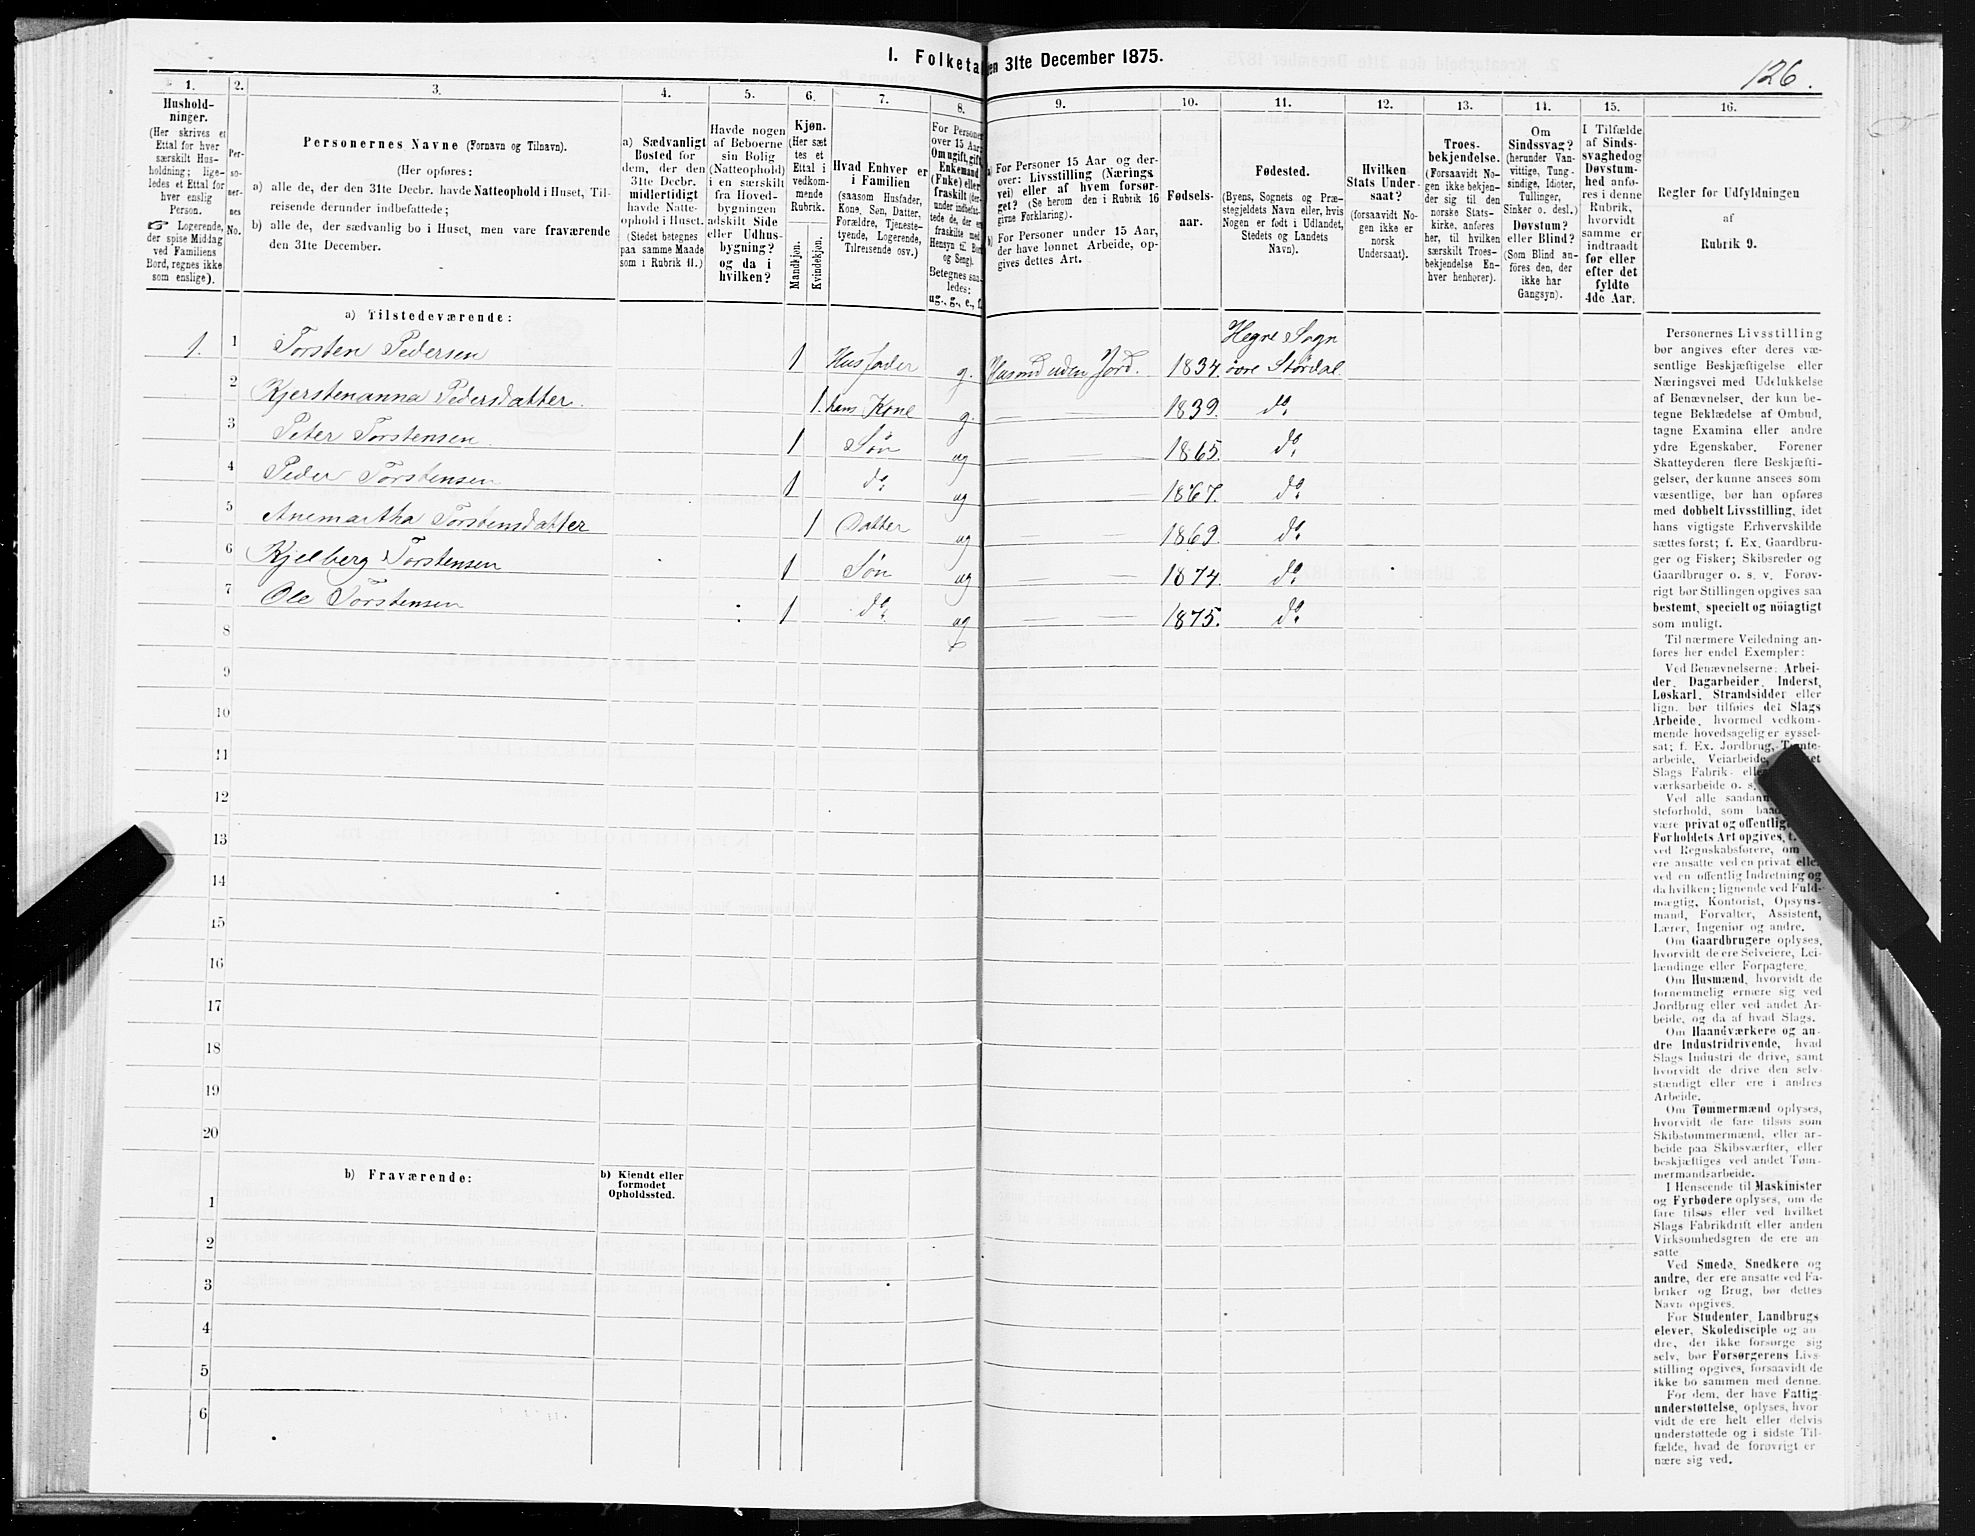 I. Folketa en 31te December 1875.
126.
1.
Hushold-
ninger.
(Her skrives et
Ettal for hver
særskilt Hus-
holdning; lige-
ledes et Ettal for
hver enslig
Person.
☞ Logerende,
der spise Middag
ved Familiens
Bord, regnes ikke
som enslige).
2.
Per-
so-
ner-
nes
No.
3.
Personernes Navne (Fornavn og Tilnavn).
(Her opføres:
a) alle de, der den 31te Decbr. havde Natteophold i Huset, Til-
reisende derunder indbefattede;
b) alle de, der sædvanlig bo i Huset, men vare fraværende
den 31te December.
4.
a) Sædvanligt
Bosted for
dem, der den
31te Decbr.
midlertidigt
havde Natte-
ophold i Huset.
(Stedet betegnes
paa samme Maade
som i Rubrik 11.)
5.
Havde nogen
af Beboerne
sin Bolig
(Natteophold)
i en særskilt
fra Hoved-
bygningen
adskilt Side
eller Udhus-
bygning?
og da i
hvilken?
6.
Kjøn.
(Her sæt
tes et
Ettal i
vedkom-
mende
Rubrik.
Mandkjøn.
Kvindekjøn.
7.
Hvad Enhver er
i Familien
(saasom Husfader,
Kone, Søn, Datter,
Forældre, Tjeneste-
tyende, Logerende,
Tilreisende osv.)
8.
For Personer
over 15 Aar:
Om ugift, gift,
Enkemand
(Enke) eller
fraskilt (der-
under indbefat-
tede de, der ere
fraskilte med
Hensyn til Bord
og Seng).
Betegnes saa-
ledes:
ug., g., e., f.
9.
a) For Personer 15 Aar og der-
over: Livsstilling (Nærings
vei) eller af hvem forsør-
get? (Se herom den i Rubrik 16
givne Forklaring).
b) For Personer under 15 Aar,
der have lønnet Arbeide, op-
gives dettes Art.
10.
Fødsels-
aar.
11.
Fødested.
(Byens, Sognets og Præ-
stegjeldets Navn eller, hvis
Nogen er født i Udlandet,
Stedets og Landets
Navn).
12.
Hvilken
Stats Under-
saat?
(forsaavidt No-
gen ikke er
norsk
Undersaat).
13.
Troes-
bekjendelse.
(Forsaavidt No-
gen ikke bekjen-
der sig til den
norske Stats-
kirke, anføres
her, til hvilken
særskilt Troes-
bekjendelse En-
hver henhører).
14.
Om
Sindssvag?
(herunder Van-
vittige, Tung-
sindige, Idioter,
Tullinger,
Sinker o. desl.)
Døvstum?
eller Blind?
(Som Blind an-
føres den, der
ikke har
Gangsyn).
15.
I Tilfælde
af Sinds-
svaghed og
Døvstum-
hed anfø-
res i denne
Rubrik,
hvorvidt
samme er
indtraadt
før eller
efter det
fyldte
4de Aar.
16.
Regler for Udfyldningen
af
Rubrik 9.
a) Tilstedeværende:
1. 1 Torsten Pedersen 1 Husfader g. Husmd uden Jord. 1834. Hegre Sogn
øvre Størdal.
2 Kjerstenanna Pedersdatter. 1. hans Kone g. 1839. do.
3 Peter Torstensen. 1 Søn ug 1865. do.
4 Peder Torstensen 1 do. ug 1867. do.
5 Anemartha Torstensdatter 1 Datter ug 1869. do.
6 Kjelberg Torstensen 1 Søn ug 1874. do.
7 Ole Torstensen 1 do. ug 1875. do.
8
9
10
11
12
13
14
15
16
17
18
19
20
b) Fraværende:
b) Kjendt eller
formodet
Opholdssted.
1
2
3
4
5
6
Personernes Livsstilling
bør angives efter deres væ-
sentlige Beskjæftigelse eller
Næringsvei med Udelukkelse
af Benævnelser, der kun be-
tegne Beklædelse af Ombud,
tagne Examina eller andre
ydre Egenskaber. Forener
Skatteyderen flere Beskjæfti-
gelser, der kunne ansees som
væsentlige, bør han opføres
med dobbelt Livsstilling, idet
hans vigtigste Erhvervskilde
sættes først; f. Ex. Gaardbru-
ger og Fisker; Skibsreder og
Gaardbruger o. s. v. Forøv-
rigt bør Stillingen opgives saa
bestemt, specielt og nøiagtigt
som muligt.
Til nærmere Veiledning an-
føres her endel Exempler:
Ved Benævnelserne: Arbei-
der, Dagarbeider, Inderst,
Løskarl, Strandsidder eller
lign. bør tilføies det Slags
Arbeide, hvormed vedkom-
mende hovedsagelig er syssel-
sat; f. Ex. Jordbrug, Tomte-
arbeide, Veiarbeide,
Slags Fabrik- eller
værksarbeide o. s.
Ved alle saadan
steforhold, som baade
være privat og offentlig
Forholdets Art opgives, t.
ved Regnskabsførere, om
ere ansatte ved en privat eller
ved en offentlig Indretning og
da hvilken; lignende ved Fuld-
mægtig, Kontorist, Opsyns-
mand, Forvalter, Assistent,
Lærer, Ingeniør og andre.
Om Gaardbrugere oplyses,
hvorvidt de ere Selveiere, Lei-
lændinge eller Forpagtere.
Om Husmænd, hvorvidt de
fornemmelig ernære sig ved
Jordbrug eller ved andet Ar-
beide, og da af hvad Slags.
Om Haandværkere og an-
dre Industridrivende, hvad
Slags Industri de drive, samt
hvorvidt de drive den selv-
stændigt eller ere i andres
Arbeide.
Om Tømmermænd oplyses,
hvorvidt de fare tilsøs som
Skibstømmermænd, eller ar-
beide paa Skibsværfter, eller
beskjæftiges ved andet Tøm-
mermandsarbeide.
I Henseende til Maskinister
og Fyrbødere oplyses, om de
fare tilsøs eller ved hvilket
Slags Fabrikdrift eller anden
Virksomhedsgren de ere an-
satte.
Ved Smede, Snedkere og
andre, der ere ansatte ved Fa-
briker og Brug, bør dettes
Navn opgives.
For Studenter, Landbrugs
elever, Skoledisciple og an
dre, der ikke forsørge sig
selv, bør Forsørgerens Livs-
stilling opgives, forsaavidt de
ikke bo sammen med denne.
For dem, der have Fattig
understøttelse, oplyses, hvor
vidt de ere helt eller delvis
understøttede og i sidste Til-
fælde, hvad de forøvrigt er
nære sig ved.